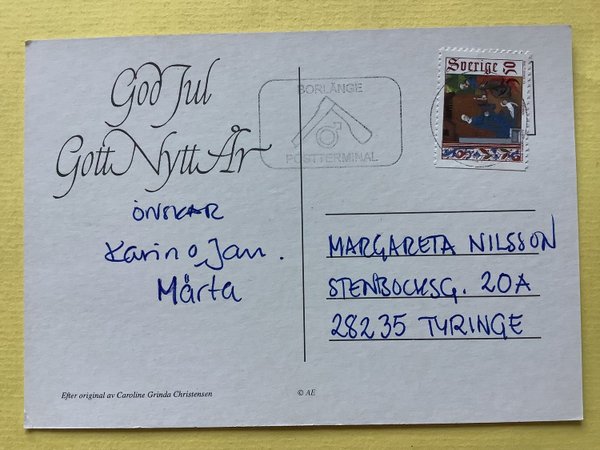 God Jul
Gott Nytt År
ÖNSKAR
Karin o Jan.
Märta
Efter original av Caroline Grinda Christensen
© AE
BORLÄNGE
POSTTERMINAL
Sverige 50
MARGARETA NILSSON
STENBOCKSG. 20A
28235 TYRINGE